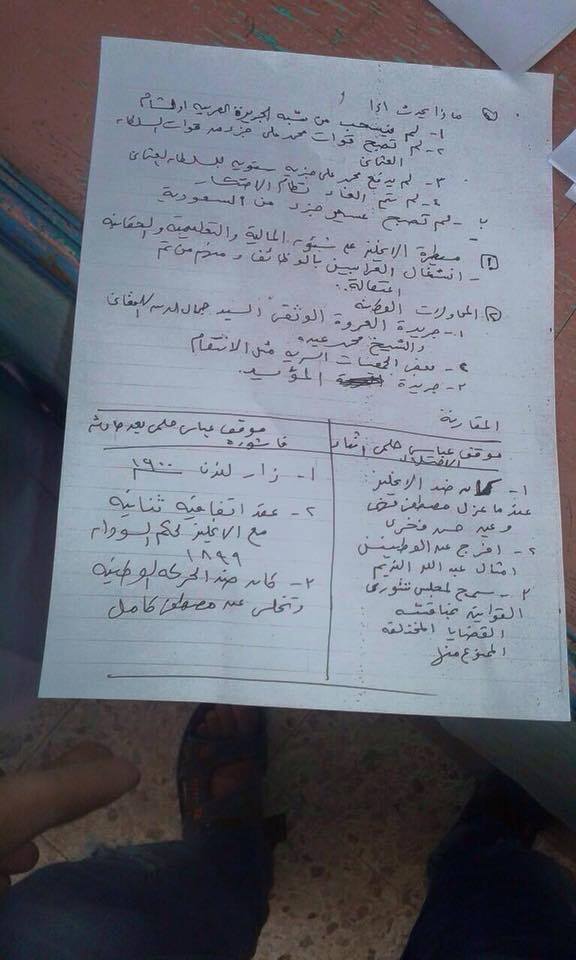 ماذا يحدث اذا
١- لم ينسحب من شبه الجزيرة العربية او الشام
٢- لم تصبح قوات محمد على جزء من قوات السلطان
العثمانى
٣- لم يدفع محمد على جزية سنوية للسلطان العثمانى
٤- لم يتم الغاء نظام الاحتكار
ب- لم تصبح عسير جزء من السعودية
١ سيطرة الانجليز على شئون المالية والتعليمية والحقانية
- انشغال العرابيين بالوظائف ومنهم من تم
٢ المحاولات
١- جريدة العروة الوثقى السيد جمال الدين الافغانى
والشيخ محمد عبده
٢- بعض الجمعيات السرية مثل الانتقام
٣- جريدة المؤيد
المقارنة
موقف عباس حلمى اثناء
١- كان ضد الانجليز
عندما عزل مصطفى فهمى
وعين حسن فخرى
٢- افرج عن الوطنيين
امثال عبد الله النديم
٣- سمح لمجلس شورى
القوانين بمناقشه
القضايا المختلفه
الممنوع منها
موقف عباس حلمى بعد حادثة
فاشوده
١- زار لندن ١٩٠٠
٢- عقد اتفاقية ثنائية
مع الانجليز لحكم السودان
١٨٩٩
٣- كان ضد الحركه الوطنية
وتخلى عن مصطفى كامل